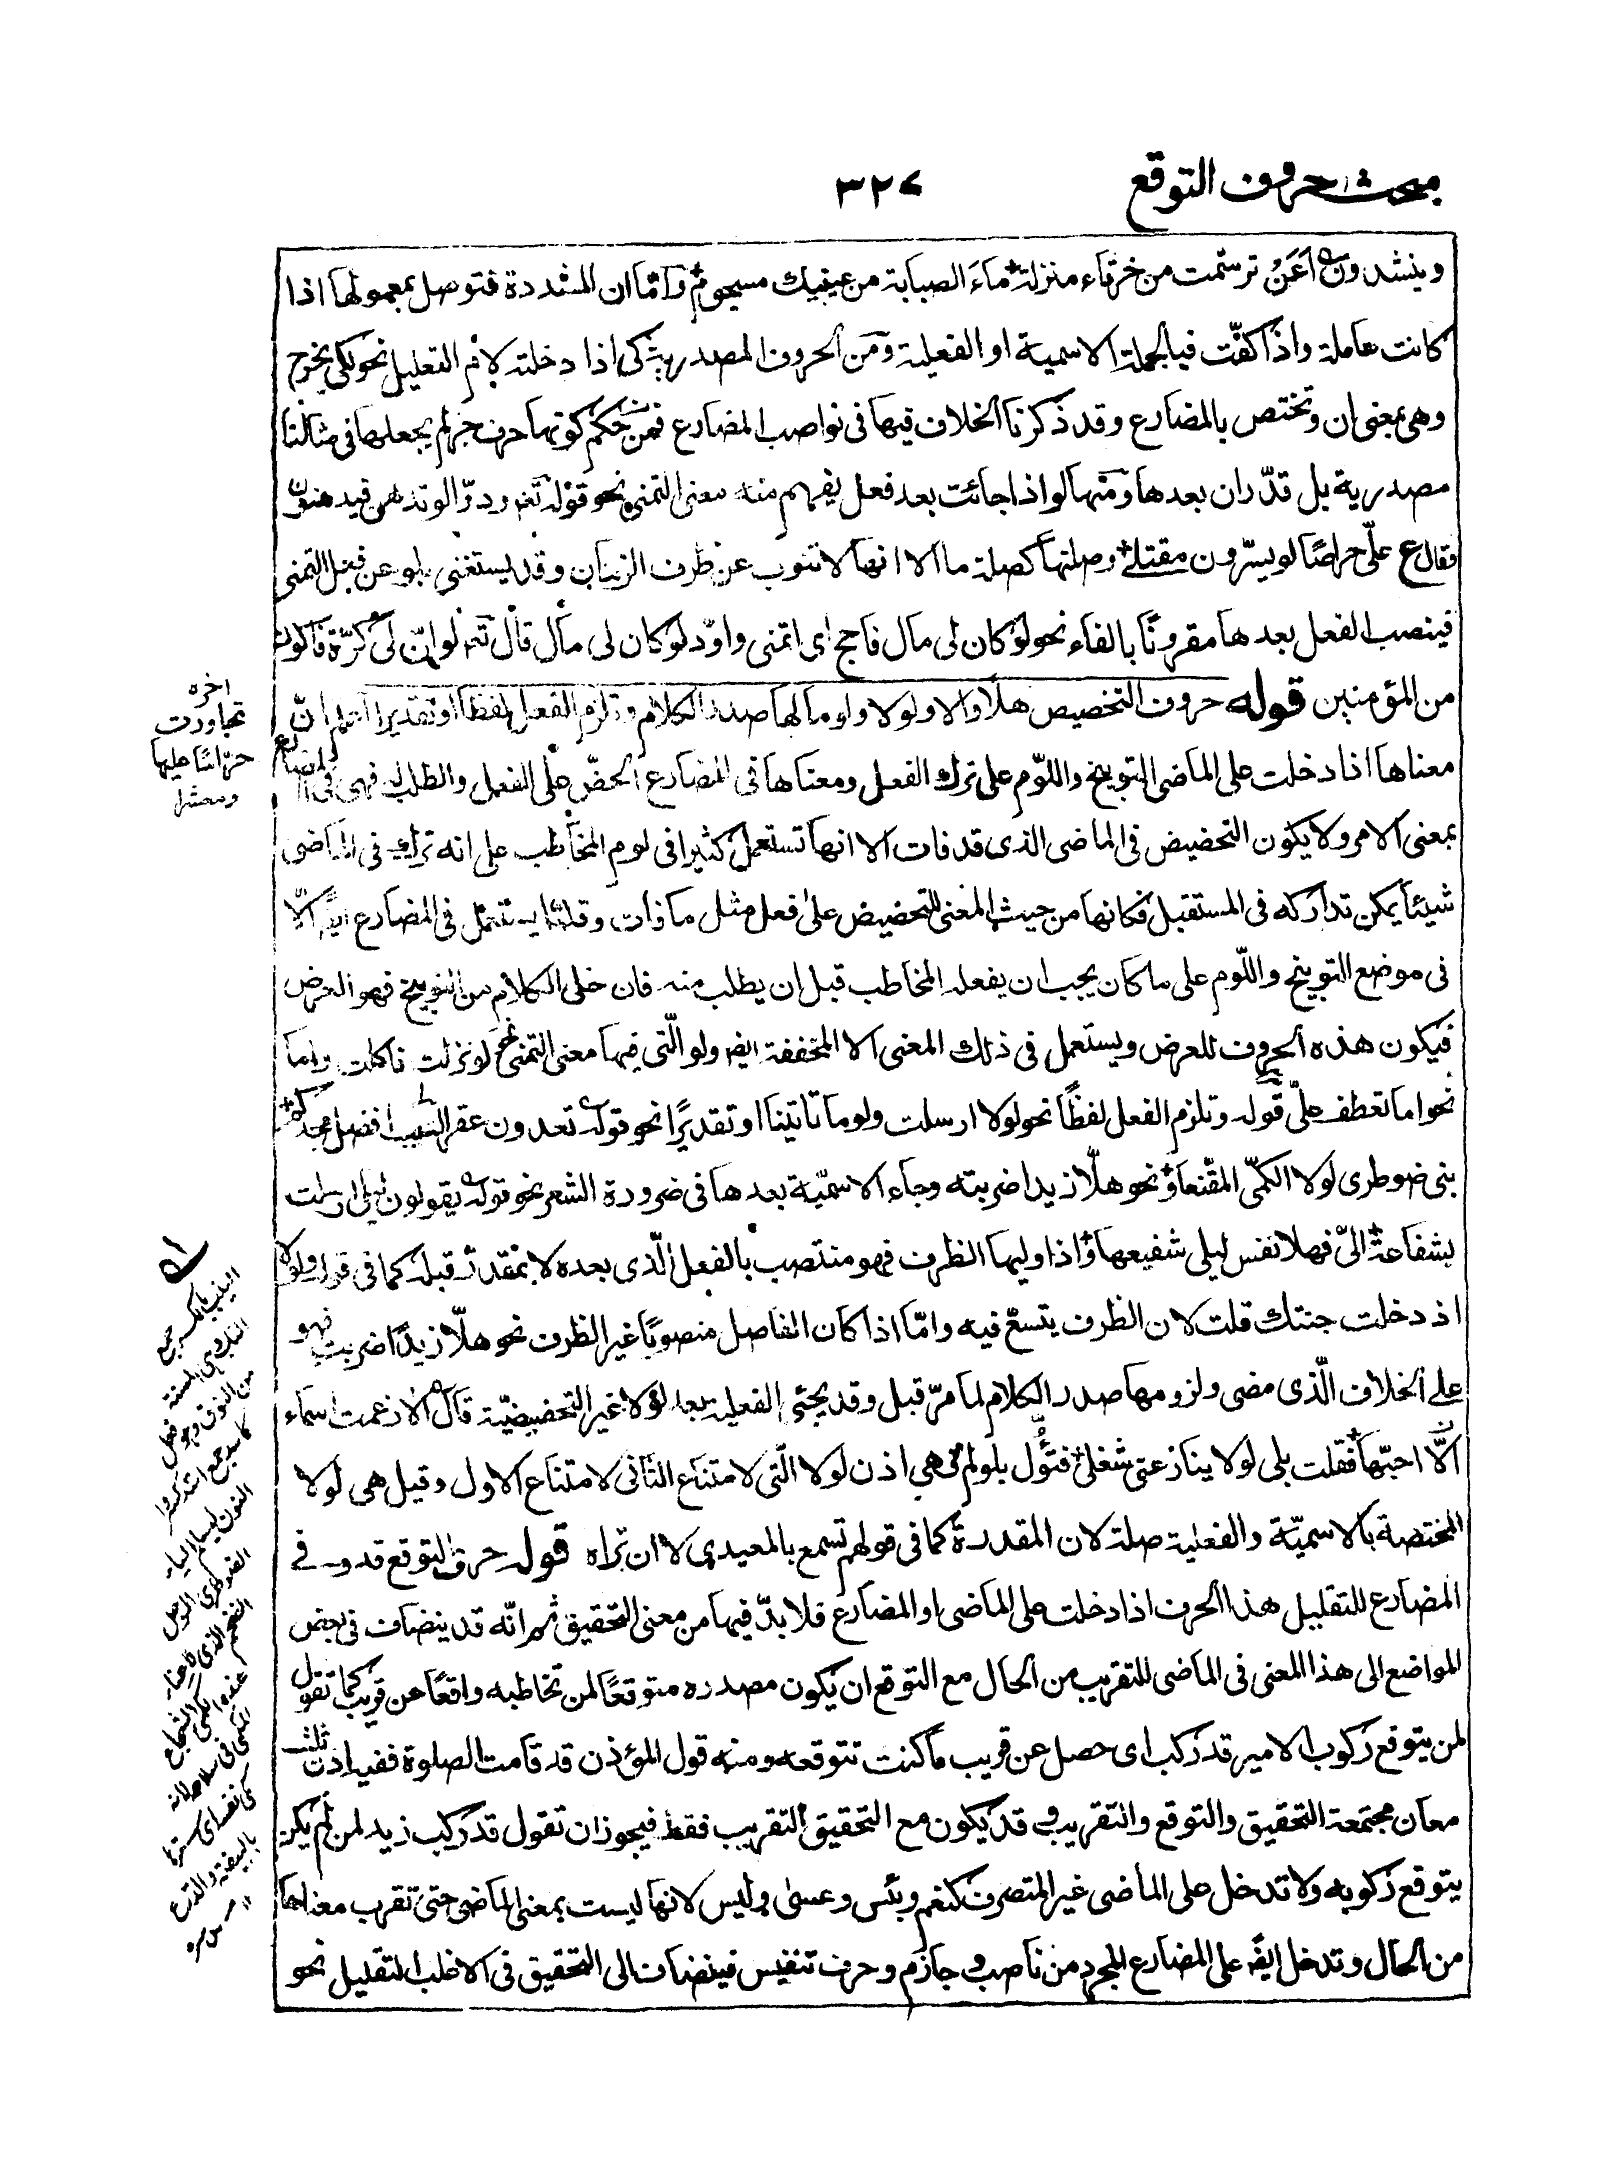 مبحث حروف التوقع ٣٢٧
وينشدون أعن ترسمت من خرقاء منزلة ماء الصبابة من عينيك مسجوم واما ان المشددة فتوصل بمعموليها اذا
كانت عاملة واذا كفّت فبالجملة الاسمية او الفعلية ومن الحروف المصدرية كى اذا دخلته لام التعليل نحو لكى يخرج
وهى بمعنى ان وتختص بالمضارع وقد ذكرنا الخلاف فيها فى نواصب المضارع فمن حكم كونها حرف جر لم يجعلها فى مثالنا
مصدرية بل قدّر ان بعدها ومنها لو اذا جائت بعد فعل يفهم منه معنى التمنى نحو قوله تعه ودّوا لو تدهن فيدهنون
فقال ع علىّ حراصا لو يسرّون مقتلى وصلتها كصلة ما الا انها لا تنوب عن ظرف الزمان وقد يستغنى بلو عن فعل التمنى
فينصب الفعل بعدها مقرونًا بالفاء نحو لو كان لى مال فاحج اى اتمنى واودّ لو كان لى مال قال تعه لو انّ لى كرّة فاكون
من المؤمنين قوله حروف التخصيص هلّا والا ولولا ولوما لها صدر الكلام وتلزم الفعل لفظا او تقديرا اعلم انّ
معناها اذا دخلت على الماضى التوبيخ واللّوم على ترك الفعل ومعناها فى المضارع الحضّ على الفعل والطلب له فهى فى المضارع
بمعنى الامر ولا يكون التحضيض فى الماضى الذى قد فات الا انها تستعمل كثيرا فى لوم المخاطب على انه ترك فى الماضى
شيئا يمكن تداركه فى المستقبل فكانها من حيث المعنى للتحضيض على فعل مثل ما فات وقلما يستعمل فى المضارع ايضً الّا
فى موضع التوبيخ واللّوم على ما كان يجب ان يفعله المخاطب قبل ان يطلب منه فان خلى الكلام من التوبيخ فهو العرض
فيكون هذه الحروف للعرض ويستعمل فى ذلك المعنى الا المخففة ايضً ولو الّتى فيها معنى التمنى نحو لو نزلت فاكلت واما
نحو اما تعطف علىّ قوله وتلزم الفعل لفظًا نحو لولا ارسلت ولوما تاتينا او تقديرًا نحو قوله تعدون عقر النيب افضل مجدكم
بنى ضوطرى لولا الكمّى المقنعا ونحو هلّا زيدا ضربته وجاء الاسميّة بعدها فى ضرورة الشعر نحو قوله يقولون ليلى ارسلت
بشفاعة الىّ فهلا نفس ليلى شفيعها واذا وليها الظرف فهو منتصب بالفعل الّذى بعده لا بمقدّر قبله كما فى قوله ولولا
اذ دخلت جنتك قلت لان الظرف يتسعّ فيه وامّا اذا كان الفاصل منصوبًا غير الظرف نحو هلّا زيدًا ضربت فهو
على الخلاف الّذى مضى ولزومها صدر الكلام لما مرّ قبل وقد يجئى الفعلية بعد لولا غير التحضيضيّة قال الا زعمت اسماء
الّا احبّها فقلت بلى لولا ينازعنى شغلى فتؤّل بلو لم فهى اذن لولا الّتى لامتناع الثانى لامتناع الاول وقيل هى لولا
المختصة بالاسميّة والفعلية صلة لان المقدرة كما فى قولهم تسمع بالمعيدى لا ان تراه قوله حرف التوقع قد وفى
المضارع للتقليل هذا الحرف اذا دخلت على الماضى او المضارع فلا بدّ فيها من معنى التحقيق ثم انّه قد ينضاف فى بعض
المواضع الى هذا المعنى فى الماضى للتقريب من الحال مع التوقع ان يكون مصدره متوقعًا لمن تخاطبه واقعًا عن قريب كما تقول
لمن يتوقع ركوب الامير قد ركب اى حصل عن قريب ما كنت تتوقعه ومنه قول المؤذن قد قامت الصلوة ففيه اذن ثلث
معان مجتمعة التحقيق والتوقع والتقريب و قد يكون مع التحقيق التقريب فقط فيجوز ان تقول قد ركب زيد لمن لم يكن
يتوقع ركوبه ولا تدخل على الماضى غير المتصرف كنعم وبئس وعسى وليس لانها ليست بمعنى الماضى حتى تقرب معناها
من الحال وتدخل ايضً على المضارع المجرد من ناصب و جازم وحرف تنفيس فينضاف الى التحقيق فى الاغلب التقليل نحو
اخره
تجاوزت
حرّاسًا عليها
ومعشرا
النيب بالكسر جمع
الناب وهى المسنة
من النوق وهو فعل